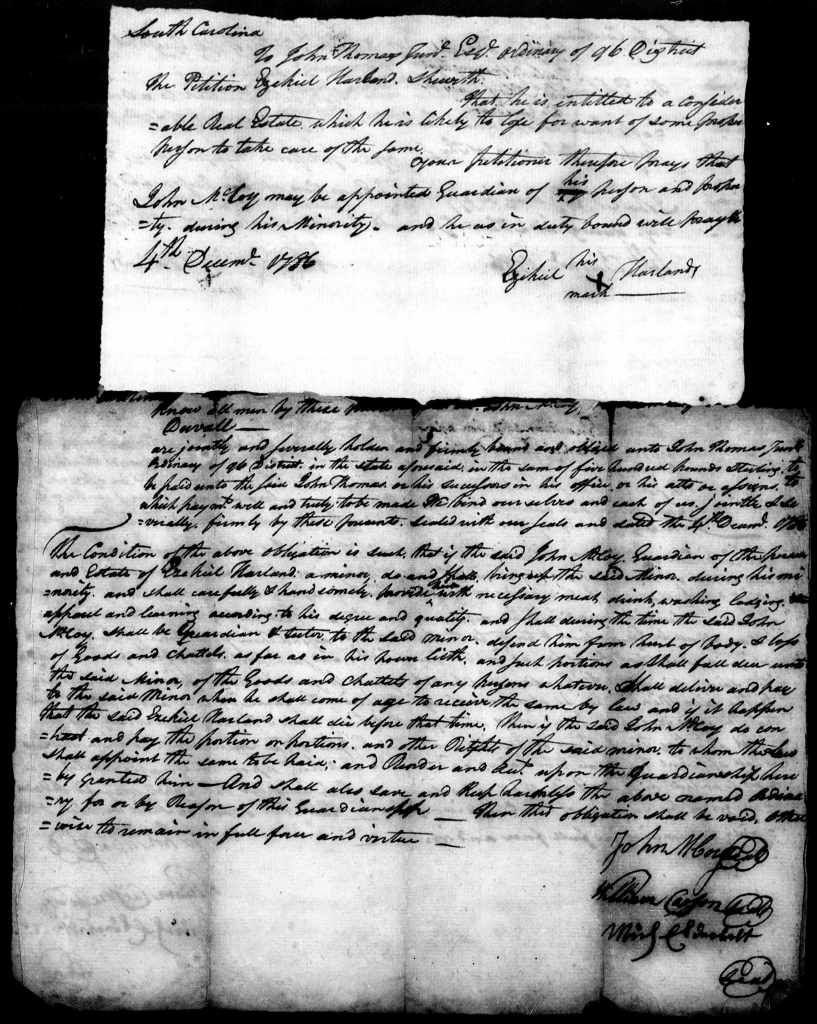 South Carolina
To John Thomas Junr. Esqr. Ordinary of 96 District
The Petition Ezekiel Harland. Sheweth.
That he is intitled to a consider
=able Real Estate which he is likely to lose for want of some proper
person to take care of the same.
your petitioner therefore prays that
John McCoy may be appointed Guardian of his person and proper
=ty. during his Minority. and he as in duty bound will pray &c
4th Decemr. 1786
Ezekiel his X mark Harland
Know all men by these John McCoy,
Duvall
are jointly and severally holden and firmly bound and obliged unto John Thomas Junr.
Ordinary of 96 District. in the state aforesaid, in the sum of five hundred pounds sterling, to
be paid unto the said John Thomas. or his successors in his office. or his attos or assigns. to
which paymt. well and truly to be made We bind our selves and each of us, jointly & se
=verally. firmly by these presents. sealed with our seals and dated the 4th Decemr. 1786
The Condition of the above obligation is such, that if the said John McCoy. Guardian of the person
and Estate of Ezekiel Harland. a minor, do and shall, bring up the said Minor. during his mi
=nority. and shall carefully & handsomely. provide with necessary meat, drink, washing lodging.
apparel and learning according to his degree and quality. and shall during the time the said John
McCoy. shall be Guardian & tutor, to the said minor. defend him from hurt of body. & loss
of Goods and Chattels. as far as in his power lieth, and such portions as shall fall due unto
the said Minor, of the Goods and Chattels of any persons whatever. shall deliver and pay
to the said Minor when he shall come of age to receive the same by law and if it happen
that the said Ezekiel Harland shall die before that time, then if the said John McCoy do con
=tent and pay the portion or portions. and other of the said minor, to whom the law
shall appoint the same to be paid; and Render and upon the Guardianship here
=by granted him — And shall also save and keep harmless the above named Ordina
=ry for or by Reason of this Guardianship — then this obligation shall be void, other
=wise to remain in full force and virtue —
John McCoy Seal
William Seal
Mich
Seal